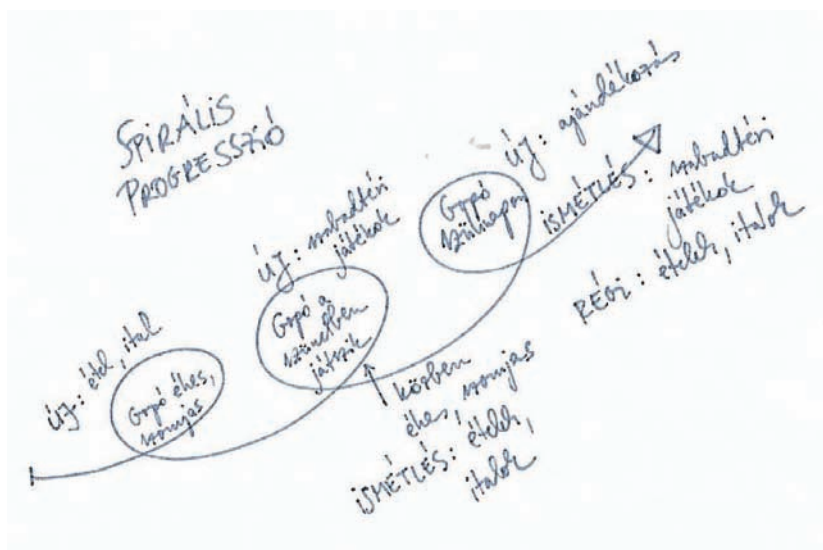 SPIRÁLIS
PROGRESSZIÓ
ÚJ: étel, ital
Gopó éhes,
szomjas
ÚJ: szabadtéri
játékok
Gopó a
szünetben
játszik
körben
éhes, szomjas
ISMÉTLÉS: ételek,
italok
Gopó
szülinapja
ÚJ: ajándékozás
ISMÉTLÉS: szabadtéri
játékok
RÉGI: ételek, italok